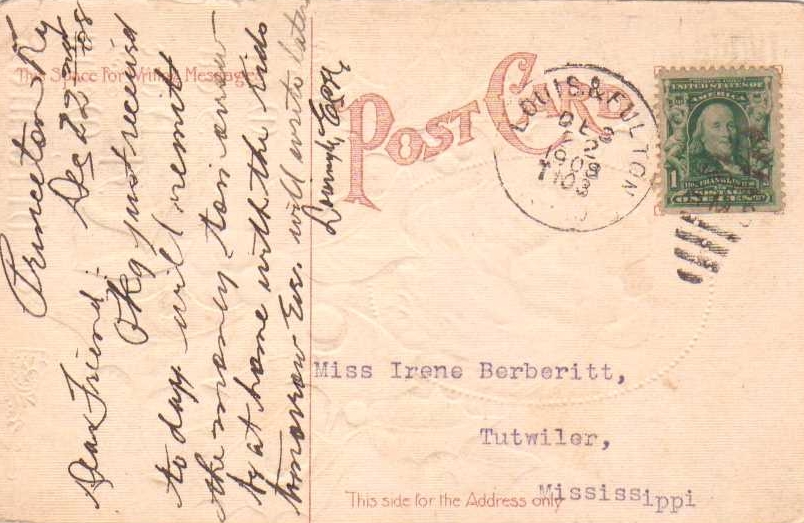 This Space For Writing Messages
Princeton Ky
Dec 22nd 08
Dear Friend:
Pkg just received
to day, will remit
the money tomorrow
by at home with the kids
tomorrow Eve. will write later
POST CARD
LOUIS. & FULTON
1908
T 103
UNITED STATES OF
AMERICA
1
FRANKLIN
POSTAGE
ONE CENT
Miss Irene Berberitt,
Tutwiler,
Mississippi
This side for the Address only